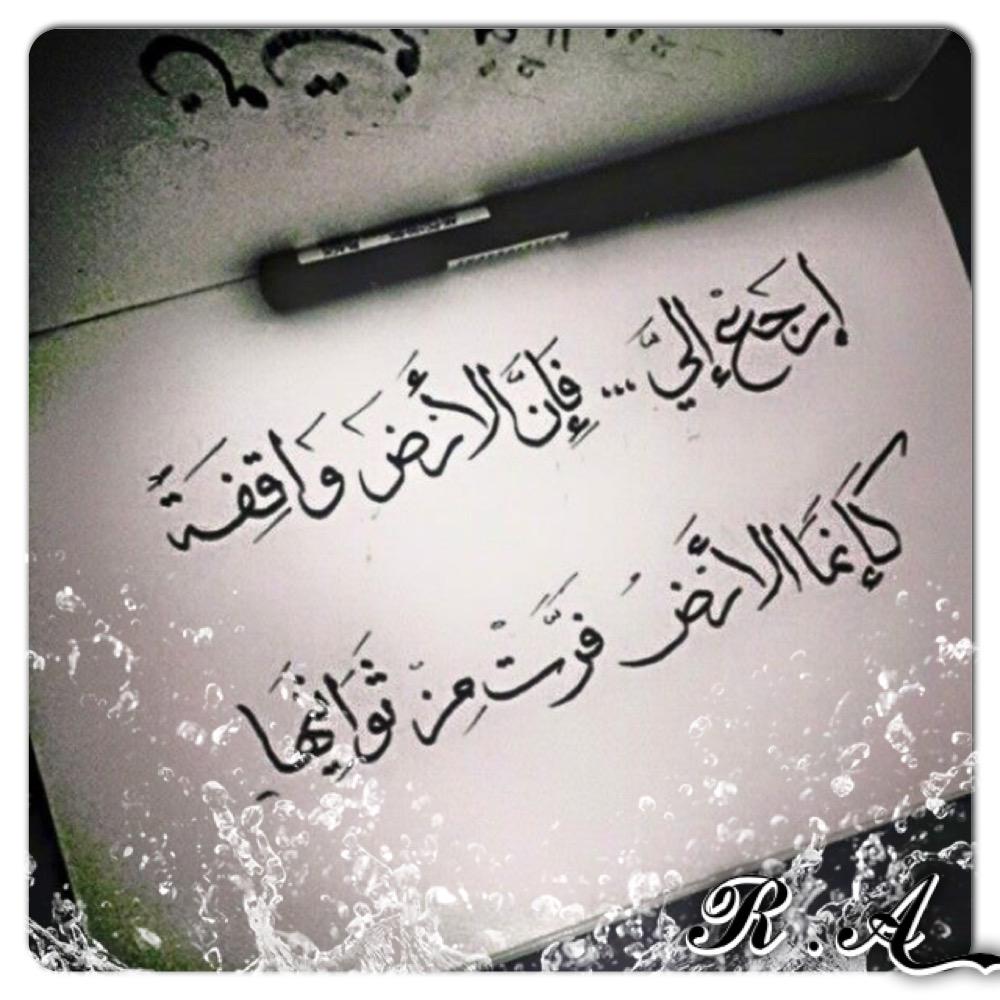 إرجع إليَّ ... فإِنَّ الأرْضَ وَاقِفَةٌ
كَإنمَا الأَرْضُ فرَّت مِنْ ثوَانِيْهَا
R.A